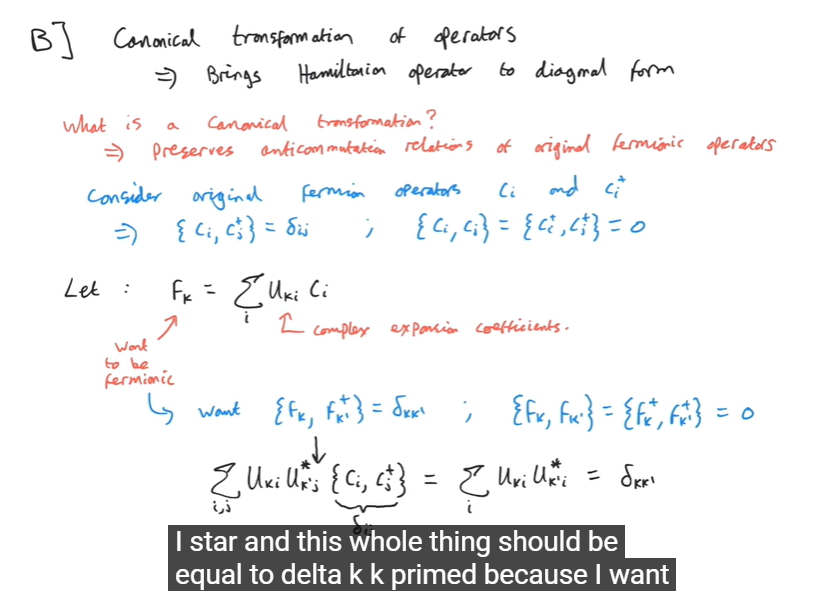 B] Canonical transformation of operators
⇒ Brings Hamiltonian operator to diagonal form
What is a canonical transformation?
⇒ Preserves anticommutation relations of original fermionic operators
Consider original fermion operators Ci and Ci†
⇒ {Ci, Cj†} = δij ; {Ci, Cj} = {Ci†, Cj†} = 0
Let : Fk = Σi Uki Ci
complex expansion coefficients.
Want
to be
fermionic
want {Fk, Fk'†} = δkk' ; {Fk, Fk'} = {Fk†, Fk'†} = 0
Σi,j Uki Uk'j* {Ci, Cj†} = Σi Uki Uk'i* = δkk'
δij
I star and this whole thing should be
equal to delta k k primed because I want